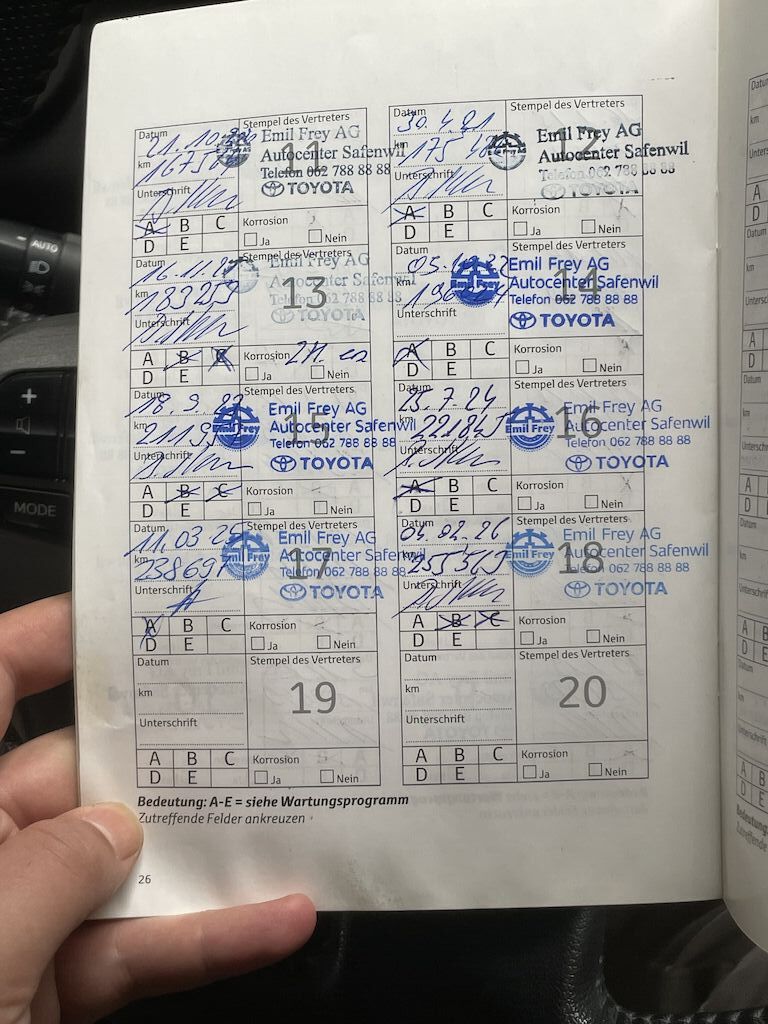 AUTO
MODE
Datum
21.10.
Stempel des Vertreters
11
Emil Frey AG
Autocenter Safenwil
Telefon 062 788 88 88
TOYOTA
km
1675
Unterschrift
A B C
D E
Korrosion
Ja Nein
Datum
30.4.21
Stempel des Vertreters
12
Emil Frey AG
Autocenter Safenwil
Telefon 062 788 88 88
TOYOTA
km
175
Unterschrift
A B C
D E
Korrosion
Ja Nein
Datum
16.11.2
Stempel des Vertreters
13
Emil Frey AG
Autocenter Safenwil
Telefon 062 788 88 88
TOYOTA
km
Unterschrift
A B C
D E
Korrosion
Ja Nein
Datum
Stempel des Vertreters
14
Emil Frey
Emil Frey AG
Autocenter Safenwil
Telefon 062 788 88 88
TOYOTA
km
Unterschrift
A B C
D E
Korrosion
Ja Nein
Datum
18.9.23
Stempel des Vertreters
15
Emil Frey
Emil Frey AG
Autocenter Safenwil
Telefon 062 788 88 88
TOYOTA
km
Unterschrift
A B C
D E
Korrosion
Ja Nein
Datum
25.7.24
Stempel des Vertreters
16
Emil Frey
Emil Frey AG
Autocenter Safenwil
Telefon 062 788 88 88
TOYOTA
km
Unterschrift
A B C
D E
Korrosion
Ja Nein
Datum
11.03.25
Stempel des Vertreters
17
Emil Frey
Emil Frey AG
Autocenter Safenwil
Telefon 062 788 88 88
TOYOTA
km
238697
Unterschrift
A B C
D E
Korrosion
Ja Nein
Datum
04.02.26
Stempel des Vertreters
18
Emil Frey
Emil Frey AG
Autocenter Safenwil
Telefon 062 788 88 88
TOYOTA
km
255565
Unterschrift
A B C
D E
Korrosion
Ja Nein
Datum
Stempel des Vertreters
19
km
Unterschrift
A B C
D E
Korrosion
Ja Nein
Datum
Stempel des Vertreters
20
km
Unterschrift
A B C
D E
Korrosion
Ja Nein
Bedeutung: A-E = siehe Wartungsprogramm
Zutreffende Felder ankreuzen
26